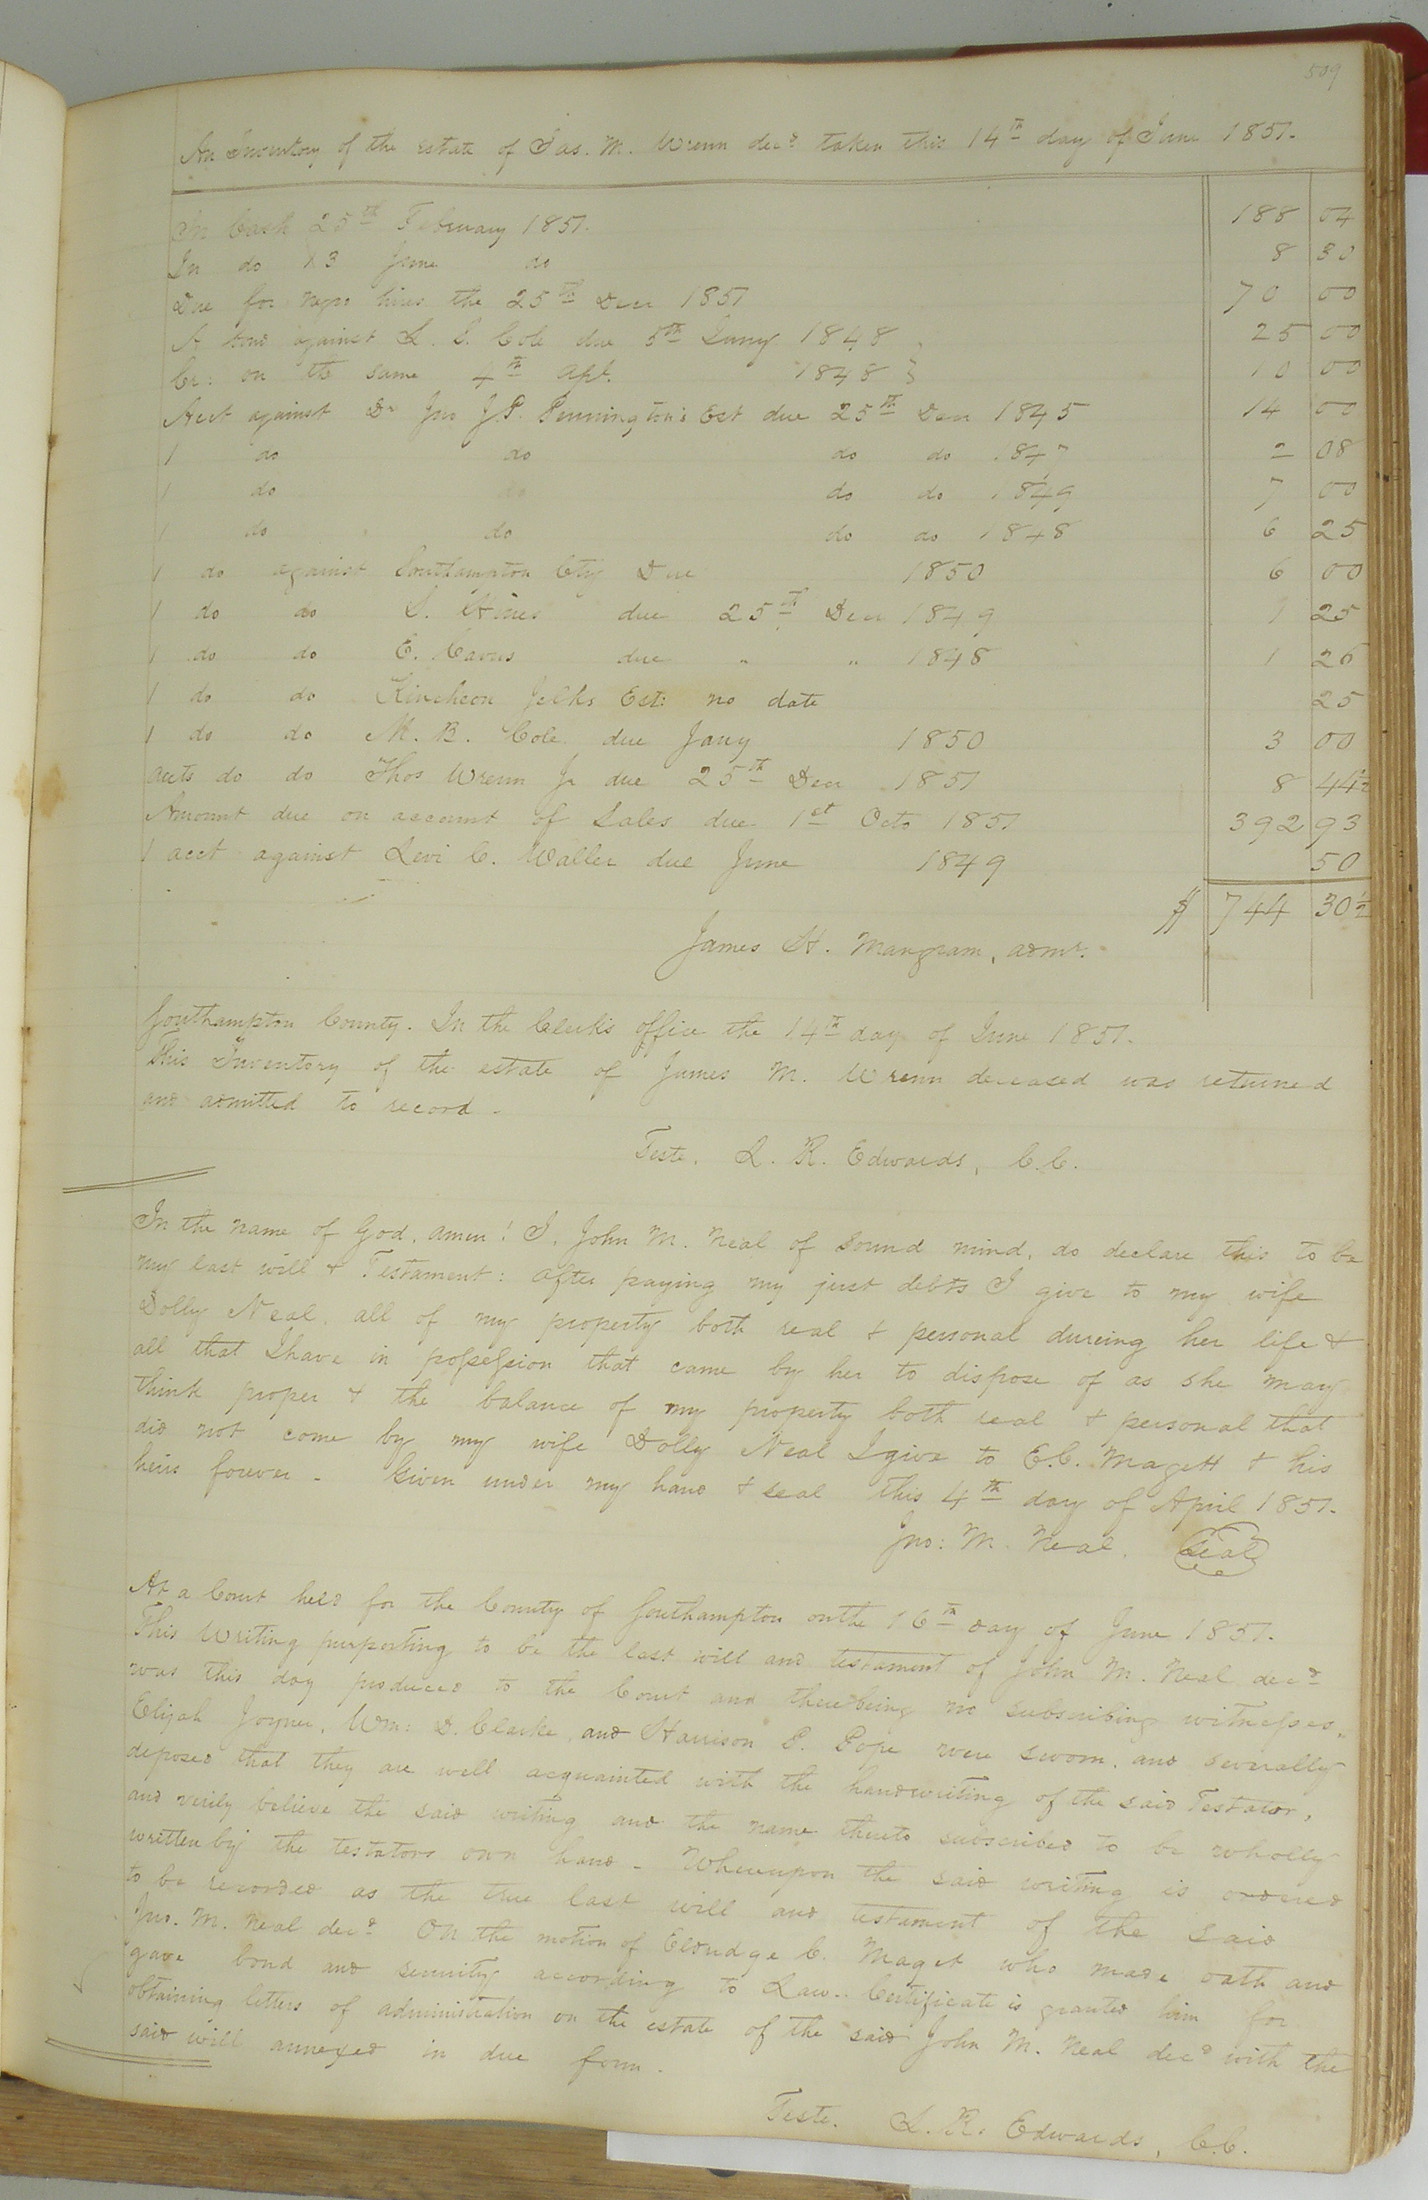 509
An Inventory of the estate of Jas. M. Wrenn decd. taken this 14th day of June 1851.
In Cash 25th February 1851. 188 04
In do 13 June do 8 30
Due for negro hires the 25th Decr 1851 70 00
A bond against L. S. Cole due 5th Jany 1848 25 00
Cr: on the same 4th Apl. 1848 } 10 00
Acct against Dr Jno J. P. Pennington's Est due 25th Decr 1845 14 00
1 do do do do 1847 2 08
1 do do do do 1849 7 00
1 do do do do 1848 6 25
1 do against Southampton Cty Due 1850 6 00
1 do do S. Hines due 25th Decr 1849 1 25
1 do do E. due " " 1848 1 26
1 do do Kincheon Jelks Est: no date 25
1 do do M. B. Cole due Jany 1850 3 00
accts do do Thos Wrenn Jr due 25th Decr 1851 8 44½
Amount due on account of Sales due 1st Octo 1851 392 93
1 acct against Levi C. Waller due June 1849 50
$ 744 30½
James H. Mangram, admr.
Southampton County. In the Clerk's office the 14th day of June 1851.
This Inventory of the estate of James M. Wrenn deceased was returned
and admitted to record.
Teste. L. R. Edwards, C.C.
In the name of God, amen! I, John M. Neal of sound mind, do declare this to be
my last will & Testament: After paying my just debts I give to my wife
Dolly Neal, all of my property both real & personal dureing her life &
all that I have in possession that came by her to dispose of as she may
think proper & the balance of my property both real & personal that
did not come by my wife Dolly Neal I give to E.C. Magett & his
heirs forever - Given under my hand & seal this 4th day of April 1851.
Jno: M. Neal. Seal
At a Court held for the County of Southampton on the 16th day of June 1851.
This Writing purporting to be the last will and testament of John M. Neal decd
was this day produced to the Court and there being no subscribing witnesses,
Elijah Joyner, Wm: D. Clarke, and Harrison P. Pope were sworn, and severally
deposed that they are well acquainted with the handwriting of the said Testator,
and verily believe the said writing and the name thereto subscribed to be wholly
written by the testators own hand - Whereupon the said writing is ordered
to be recorded as the true last will and testament of the said
Jno. M. Neal decd. On the motion of Eldridge C. Maget who made oath and
gave bond and security according to Law. Certificate is granted him for
obtaining letters of administration on the estate of the said John M. Neal decd with the
said will annexed in due form.
Teste. L. R. Edwards, C.C.